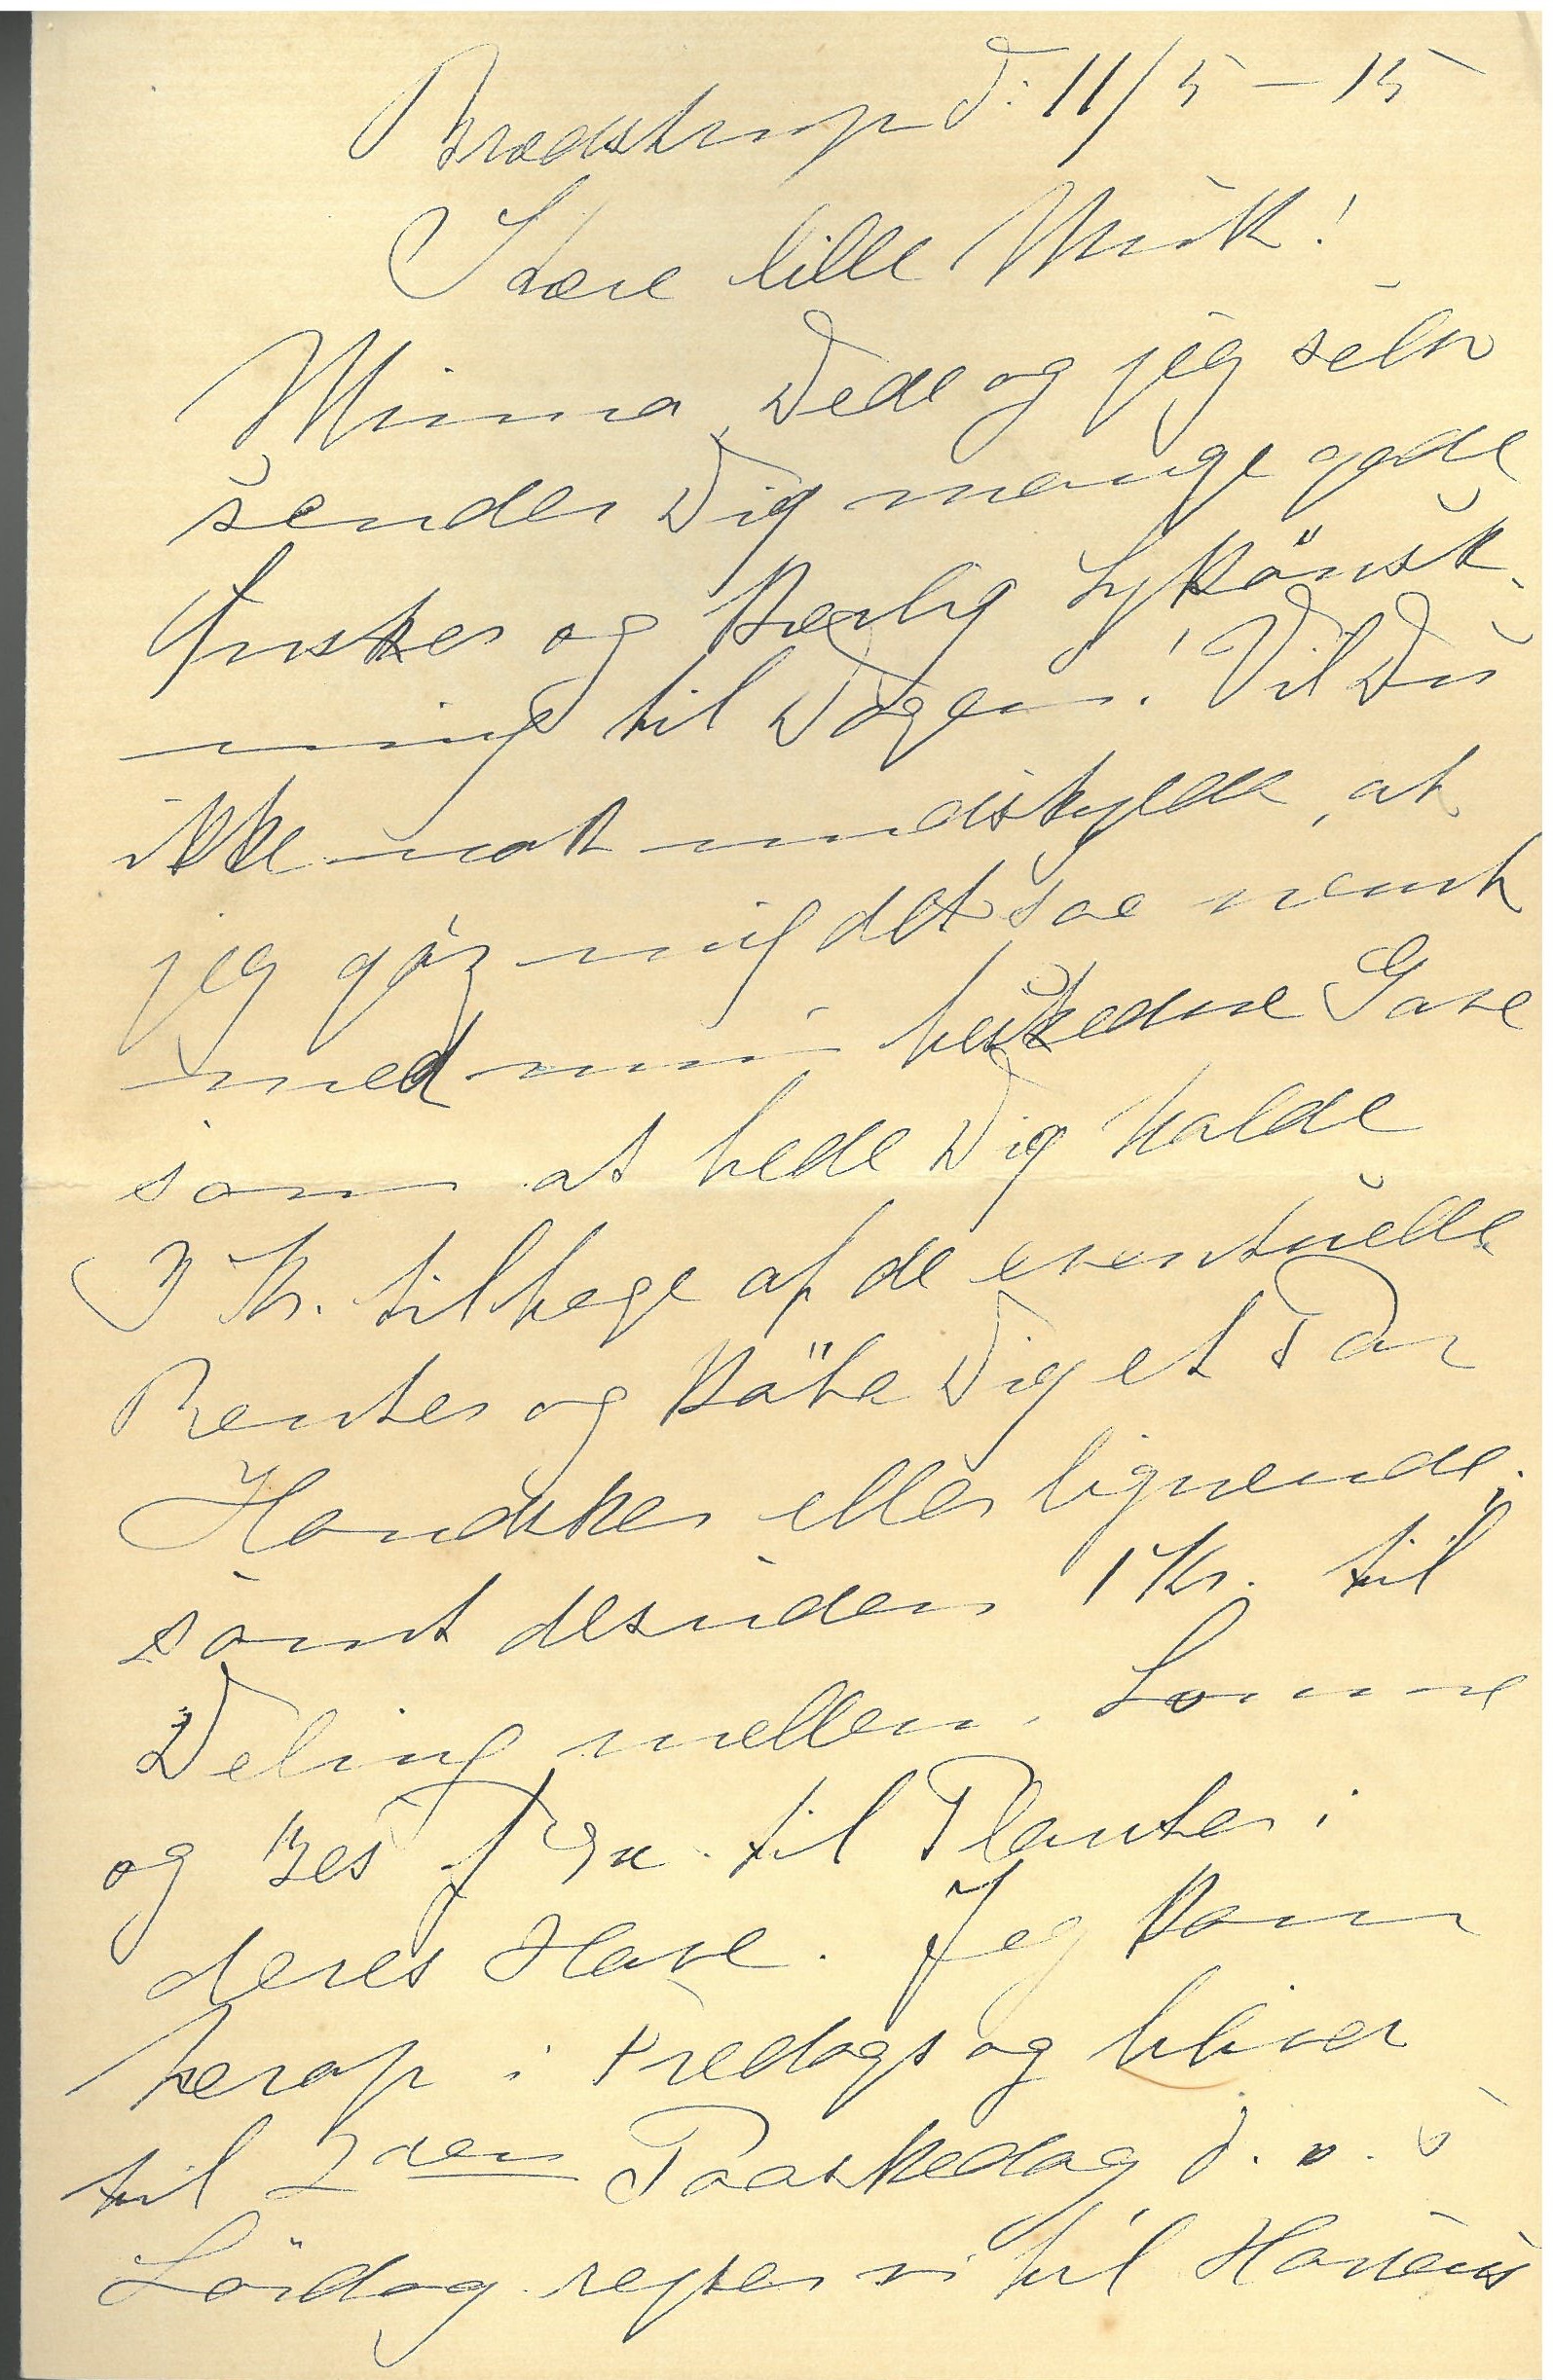 Brædstrup d: 11/5 – 15
Kære lille Musk!
Minna, Dede og jeg selv
sender Dig mange gode
Ønsker og kærlig Lykönsk-
ning til Dagen! Vil Du
ikke nok undskylde, at
jeg gör mig det saa nemt
med min beskedne Gave
som at bede Dig holde
3 Kr. tilbage af de eventuelle
Renter og köbe Dig et Par
Handsker eller lignende;
samt desuden 1 Kr. til
Deling mellem
og til Planter i
deres Have. Jeg kom
herop i Fredags og bliver
til 2den Paaskedag d.v.s
Lördag rejser vi til Horsens